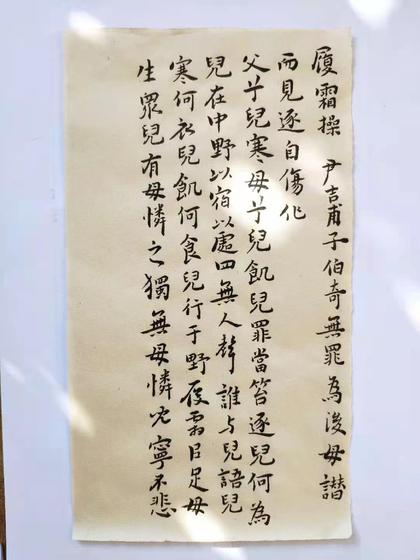 履霜操 尹吉甫子伯奇無罪為後母譖
而見逐自傷作
父兮兒寒母兮兒飢兒罪當笞逐兒何為
兒在中野以宿以處四無人聲誰与兒語兒
寒何衣兒飢何食兒行于野履霜以足母
生眾兒有母憐之獨無母憐兒寧不悲